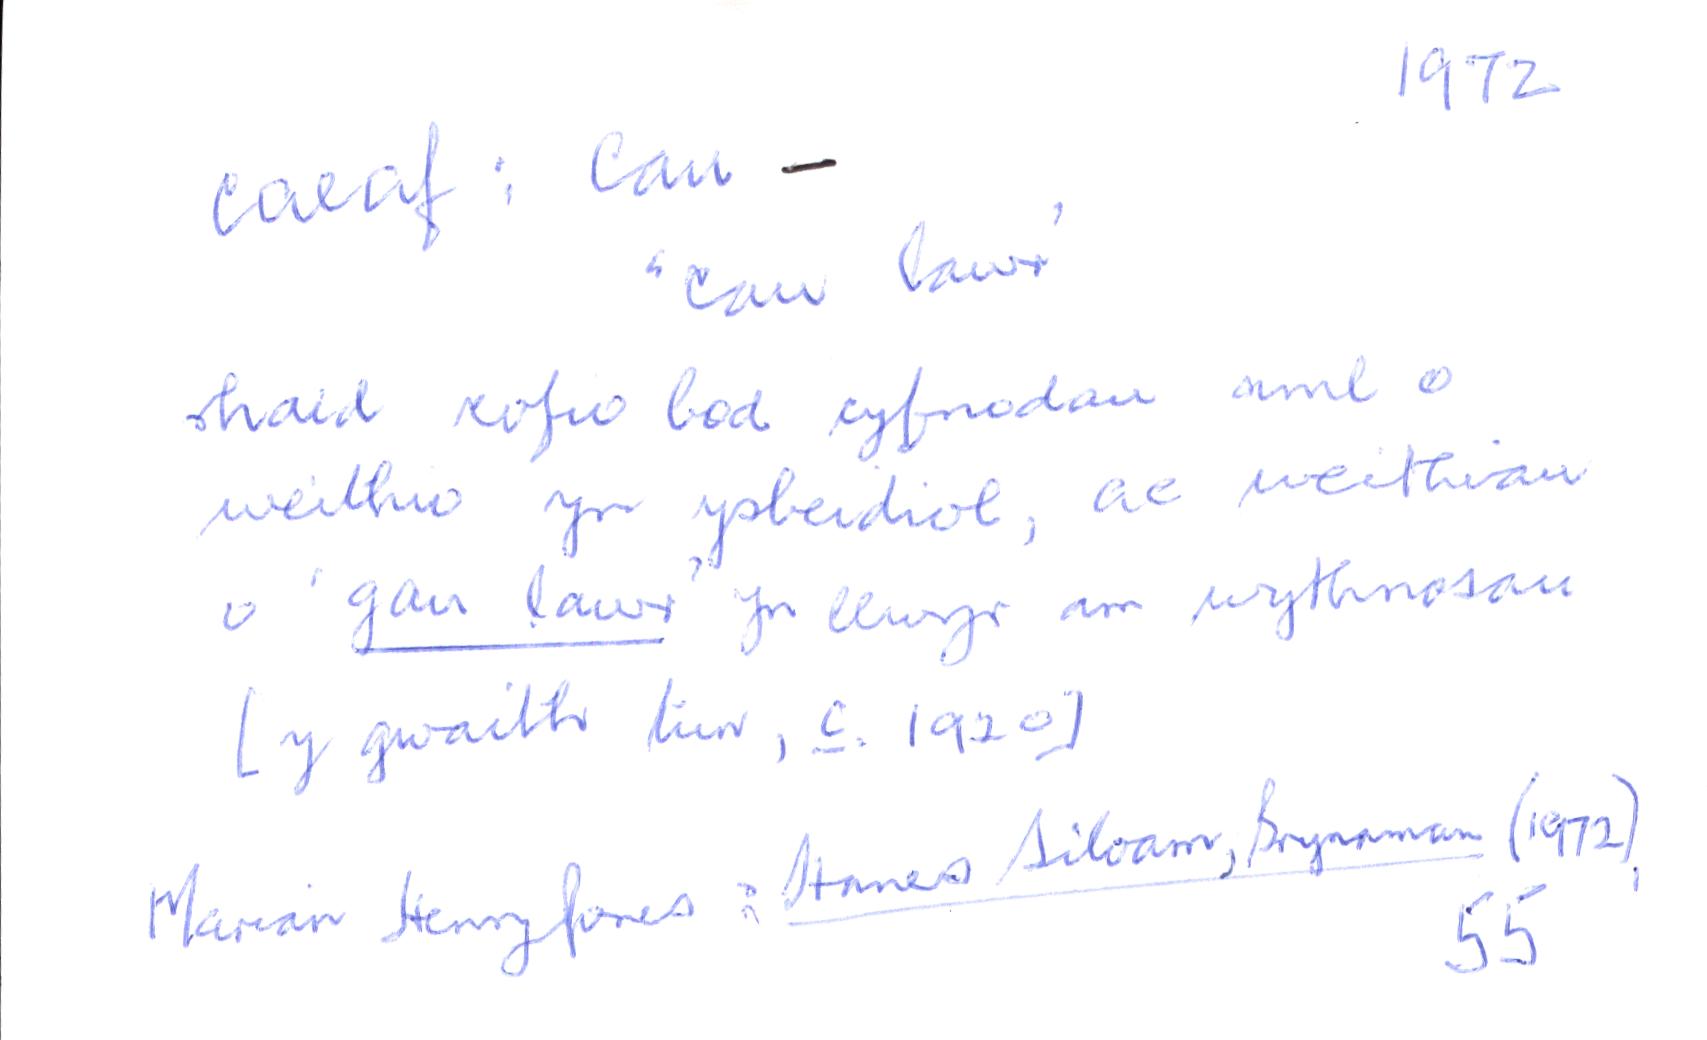 1972
caeaf : Cau –
'cau lawr'
rhaid cofio bod cyfnodau aml o
weithio yn ysbeidiol, ac weithiau
o 'gau lawr' yn llwyr am wythnosau
[y gwaith tun, c. 1920]
Marian Henry Jones : Hanes Siloam, Brynaman (1972),
55